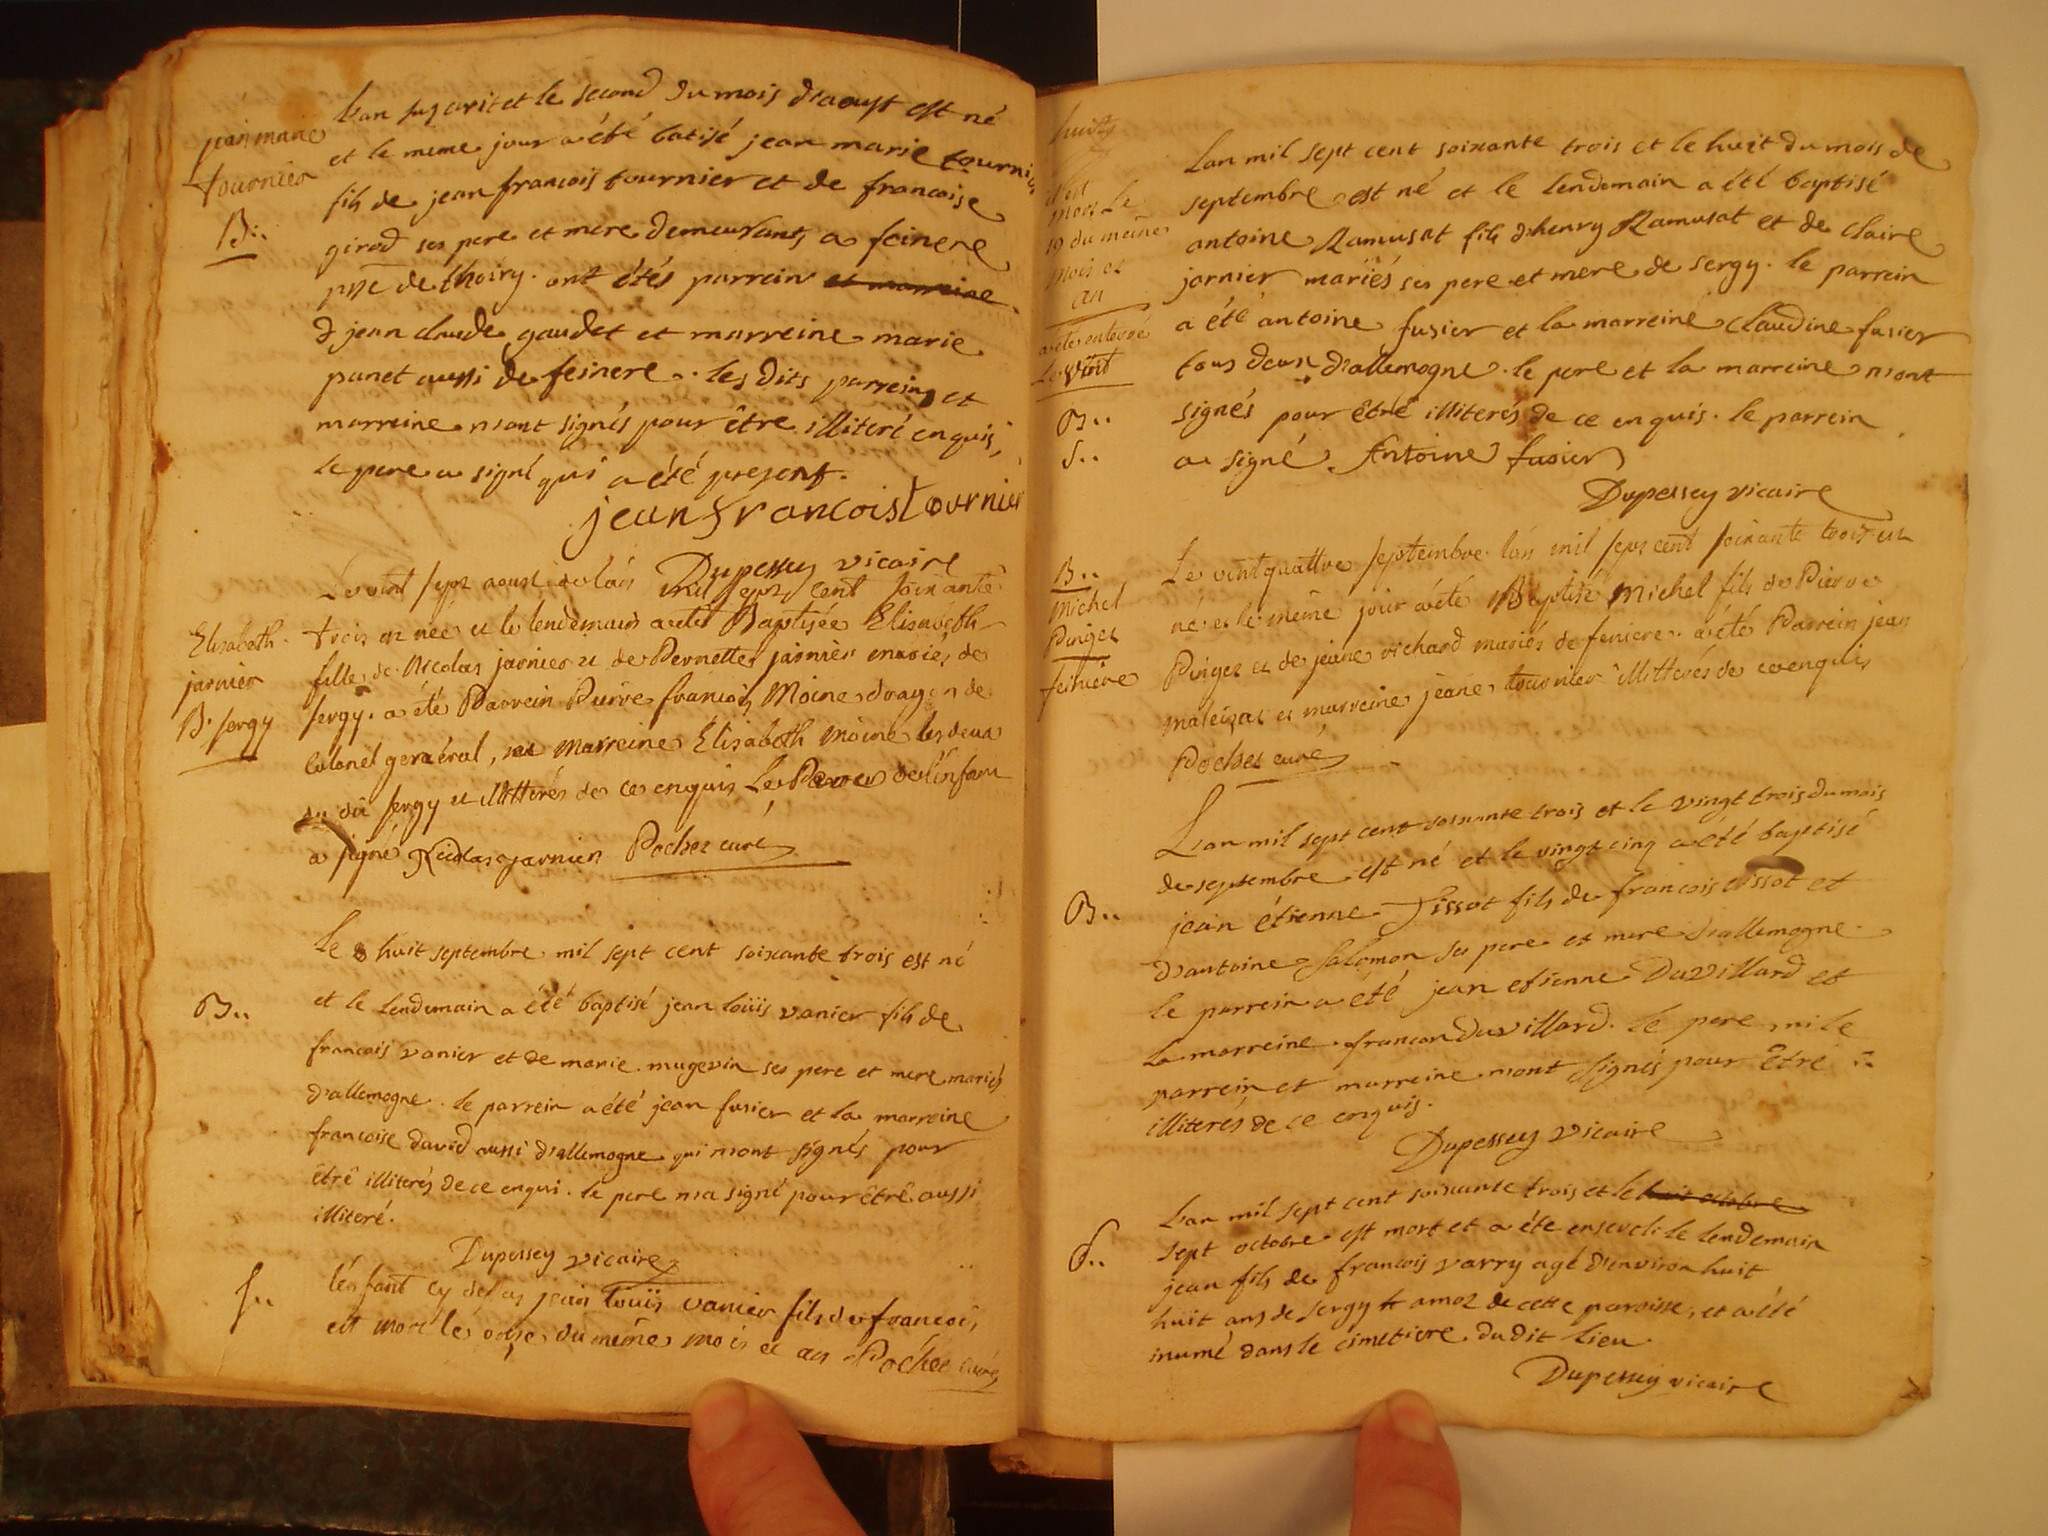 jean marie
tournier
B..
L'an susecrit et le second du mois d'aoust est né
et le meme jour a été batisé jean marie tournier
fils de jean francois tournier et de francoise
girod ses pere et mere demeurants a feinere
psse de thoiry. ont étés parrein et marreine
d jean claude gaudet et marreine marie
panet aussi de feinere. les dits parrein et
marreine n'ont signés pour être illiteré enquis,
le pere a signé qui a été present.
jean francois tournier
Dupessey vicaire
Elisabeth
jarnier
B. sergy
Le vint sept aoust de l'an mil sept cent soixante
trois est née et le lendemain a été Baptisée Elisabeth
fille de Nicolas jarnier et de Pernette jarnier mariés de
sergy. a été Parrein Pierre francois Moine dragon de
colonel general, et Marreine Elisabeth moine les deux
du dit sergy et illitterés de ce enquis Le Pere de l'enfant
a signé Nicolas jarnier Pochet curé
B..
Le 8 huit septembre mil sept cent soixante trois est né
et le lendemain a été baptisé jean loüis vanier fils de
francois vanier et de marie mugevin ses pere et mere mariés
d'allemogne. le parrein a été jean fusier et la marreine
francoise david aussi d'allemogne qui n'ont signés pour
être illiterés de ce enqui. le pere n'a signé pour être aussi
illiteré.
Dupessey vicaire
S..
l'enfant cy dessus jean loüis vanier fils de francois
est mort le onze du même mois et an Pochet curé
est
mort Le
19 du meine
mois et
an
a été enterré
Le vint
B..
S..
Lan mil sept cent soixante trois et le huit du mois de
septembre est né et le lendemain a été baptisé
antoine Ramusat fils d'henry Ramusat et de claire
jarnier mariés ses pere et mere de sergy. le parrein
a été antoine fusier et la marreine claudine fusier
tous deux d'allemogne. le pere et la marreine n'ont
signés pour être illiterés de ce enquis. le parrein
a signé. Antoine fusier
Dupessey vicaire
B..
Michel
Pinget
feiniere
Le vint quattre septembre l'an mil sept cent soixante trois est
né et le même jour a été Baptisé Michel fils de Pierre
Pinget et de jeane richard mariés de feniere. a été Parrein jean
maleizat et marreine jeane tournier illitterés de ce enquis
Pochet curé
B..
L'an mil sept cent soixante trois et le vingt trois du mois
de septembre est né et le vingt cinq a été baptisé
jean étienne Tissot fils de francois tissot et
d'antoine Salomon ses pere et mere d'allemogne.
le parrein a été jean etienne Duvillard et
la marreine francon duvillard. le pere, ni le
parrein et marreine n'ont signés pour être
illiterés de ce enquis.
Dupessey vicaire
S..
L'an mil sept cent soixante trois et le huit octobre
sept octobre est mort et a été enseveli le lendemain
jean fils de francois varry agé d'environ huit
huit ans de sergy h amoz de cette paroisse, et a été
inumé dans le cimetiere du dit lieu
Dupessey vicaire